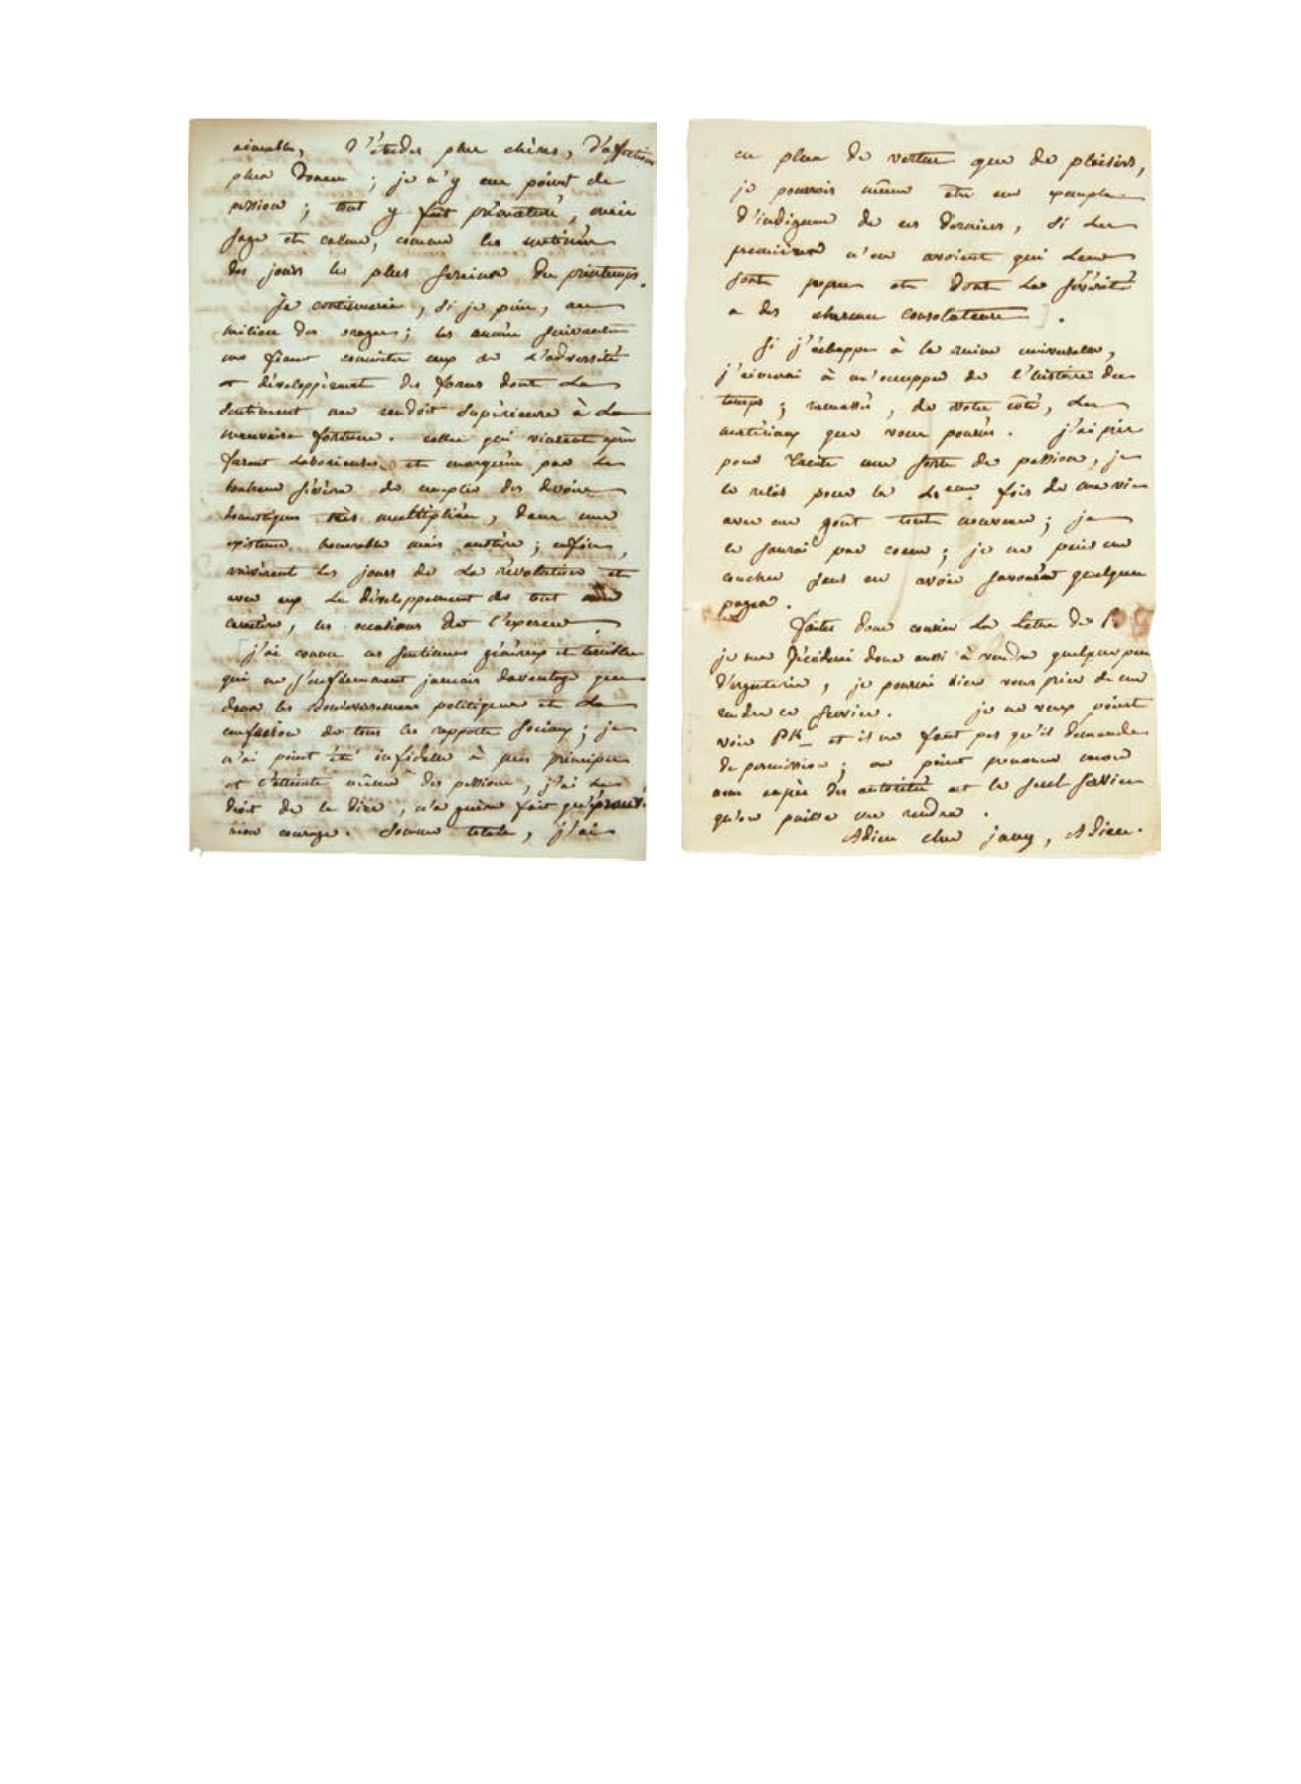 aimables, d'études plus chères, d'affections
plus douces ; je n'y eus point de
passion ; tout y fut prématuré, mais
sage et calme, comme les matinées
des jours les plus sereins du printemps.
Je continuerai, si je puis, au
milieu des orages ; les années suivantes
me firent connoitre ceux de l'adversité
et développèrent des forces dont le
sentiment me rendoit supérieure à la
mauvaise fortune. celles qui vinrent après
furent laborieuses et marquées par le
bonheur sévère de remplir des devoirs
domestiques très multipliés, dans une
existence honorable mais austère ; enfin,
arrivèrent les jours de la révolution et
avec eux le développement de tout mon
caractère, les occasions de l'exercer.
j'ai connu ces sentimens généreux et terribles
qui ne s'enflamment jamais davantage que
dans les bouleversemens politiques et la
confusion de tous les rapports sociaux ; je
n'ai point été infidelle à mes principes
et l'atteinte même des passions, j'ai le
droit de le dire, n'a guères fait qu'éprouver
mon courage. Somme totale, j'ai
eu plus de vertus que de plaisirs,
je pourrois même être un exemple
d'indigence de ces derniers, si les
premières n'en avoient qui leur
sont propres et dont la sévérité
a des charmes consolateurs.
Si j'échappe à la ruine universelle,
j'aimerai à m'occupper de l'histoire du
temps ; ramassés, de votre côté, les
matériaux que vous pourrés. j'ai pris
pour Tacite une sorte de passion, je
le relis pour la 4.eme fois de ma vie
avec un goût tout nouveau ; je
le saurai par coeur ; je ne puis me
coucher sans en avoir savouré quelques
pages.
je me déciderai donc aussi à vendre quelque peu
d'argenterie, je pourrai bien vous prier de me
rendre ce service. je ne veux point
voir et il ne faut pas qu'il demande
de permission ; ne point prononcer encore
mon auprès des autorités est le seul service
qu'on puisse me rendre.
Adieu cher jany, Adieu.